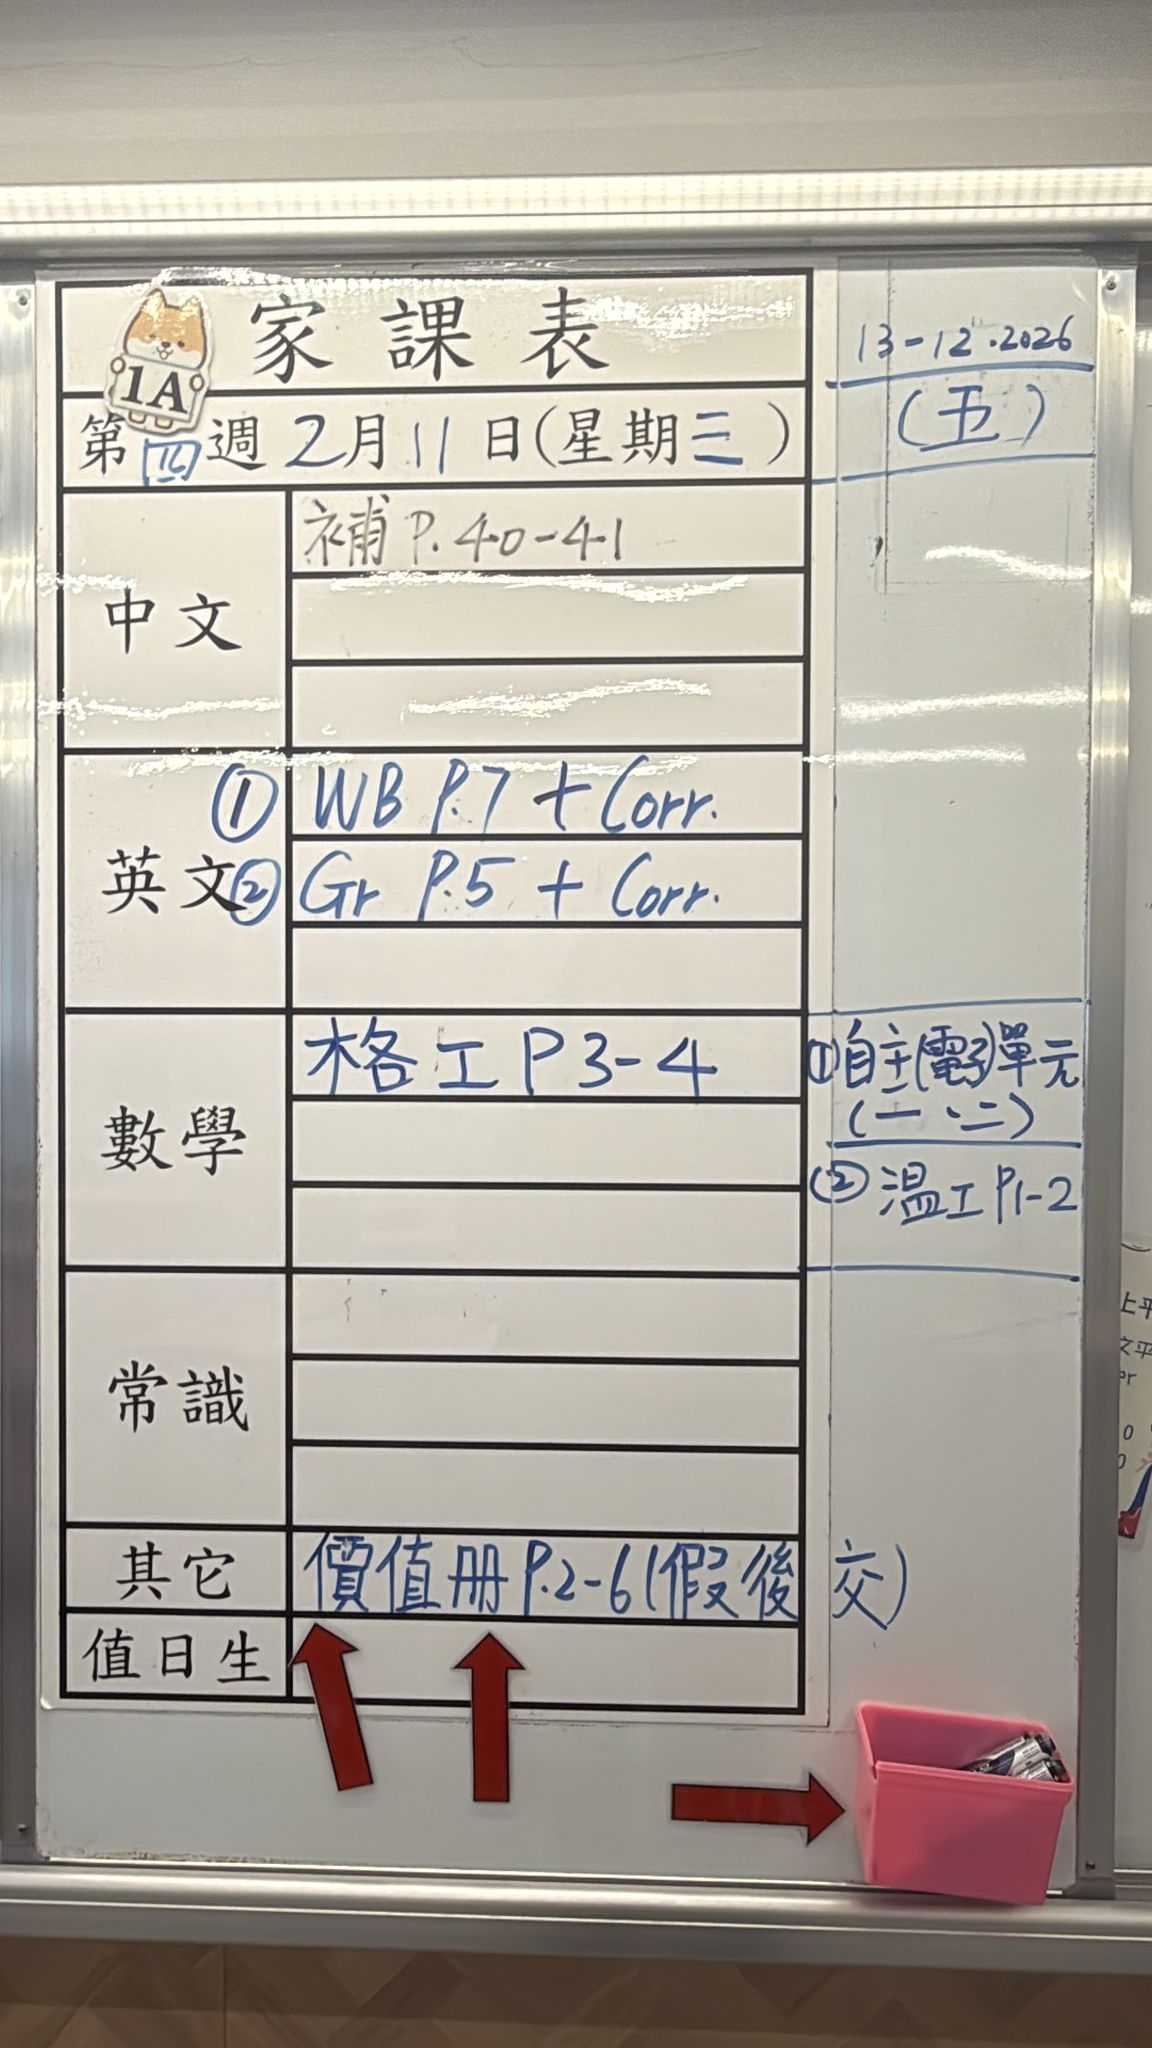 家課表
1A
13-12.2026
(五)
第四週 2月11日(星期三)
中文
補 P.40-41
英文
① WB P.7 + Corr.
② Gr P.5 + Corr.
數學
格工 P3-4
①自主(電子)單元
(一、二)
② 溫工 P1-2
常識
其它
價值册 P.2-6(假後交)
值日生
上平
文平
er
0
0